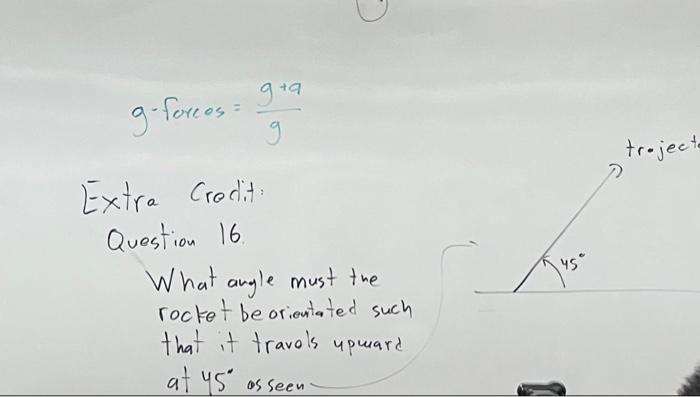 g-forces = g+a
g
Extra Credit:
Question 16.
What angle must the
rocket be orientated such
that it travels upward
at 45° as seen
traject
45°